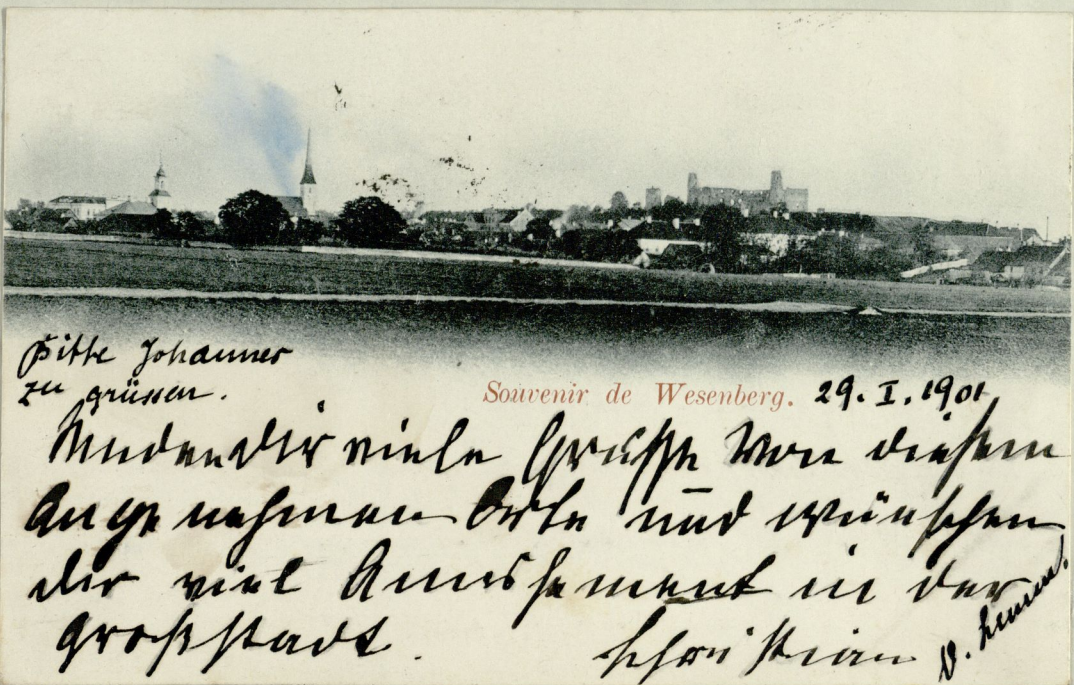 Bitte Johannes
zu grüssen.
Souvenir de Wesenberg. 29. I. 1901
Dir viele Grüsse von diesem
Angenehmen Orte und wünschen
dir viel Amussement in der
Großstadt.